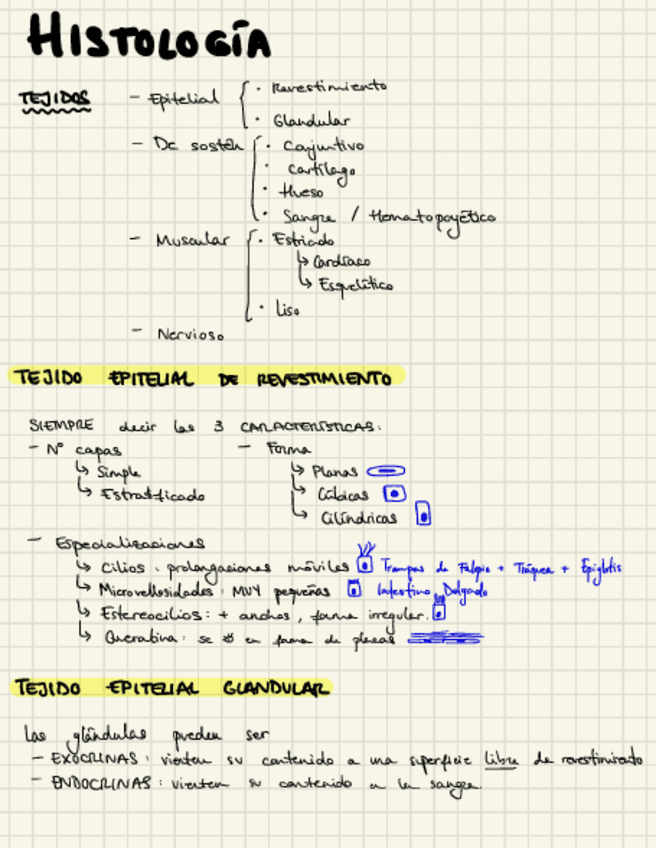 HISTOLOGÍA
TEJIDOS
- Epitelial
· Revestimiento
· Glandular
- De sostén
· Conjuntivo
· Cartílago
· Hueso
· Sangre / Hematopoyético
- Muscular
· Estriado
↳ Cardíaco
↳ Esquelético
· Liso
- Nervioso
TEJIDO EPITELIAL DE REVESTIMIENTO
SIEMPRE decir las 3 CARACTERÍSTICAS:
- Nº capas
↳ Simple
↳ Estratificado
- Forma
↳ Planas
↳ Cúbicas
↳ Cilíndricas
- Especializaciones
↳ Cilios: prolongaciones móviles Trompas de Falopio + Tráquea + Epiglotis
↳ Microvellosidades: MUY pequeñas Intestino Delgado
↳ Estereocilios: + anchos, forma irregular.
↳ Queratina: se en forma de placas
TEJIDO EPITELIAL GLANDULAR
Las glándulas pueden ser
- EXOCRINAS: vierten su contenido a una superficie libre de revestimiento
- ENDOCRINAS: vierten su contenido a la sangre.